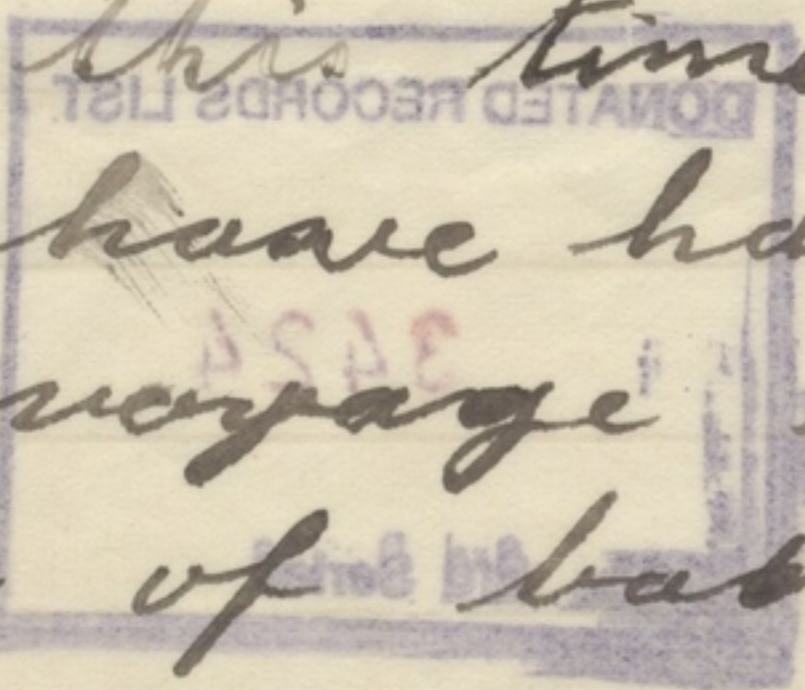 this time
DONATED RECORDS LIST
have ha
3424
voyage
of bab